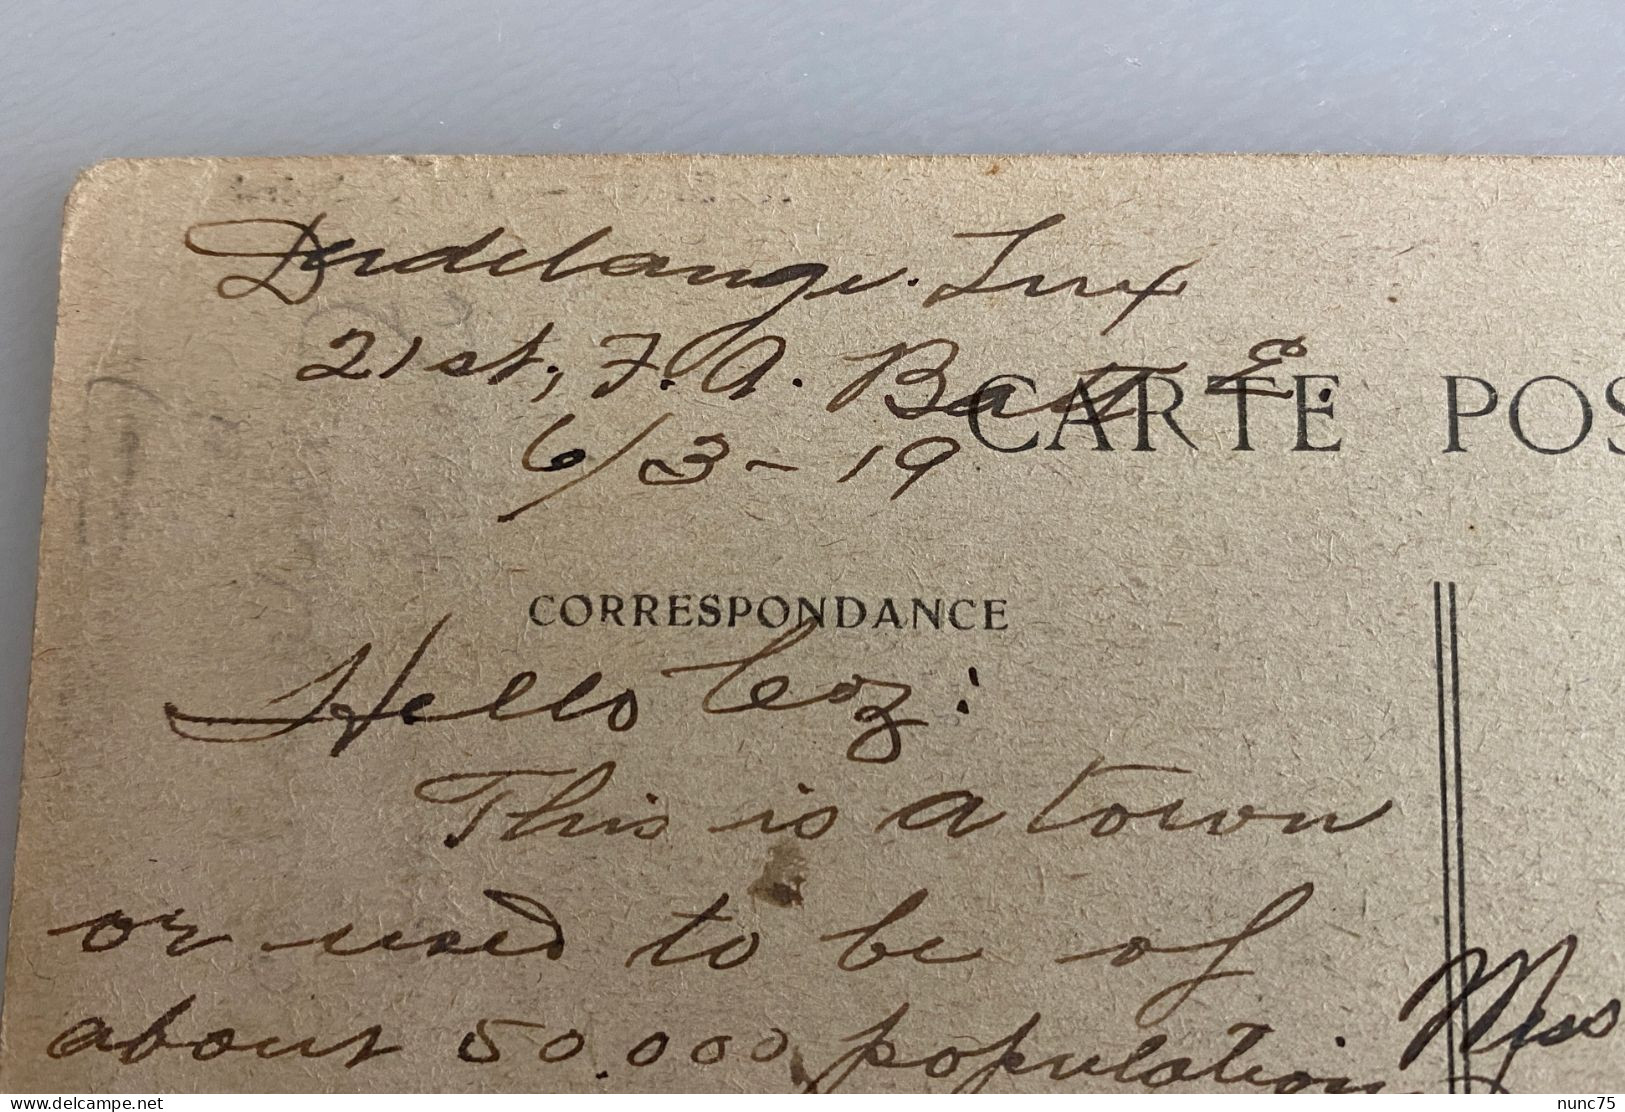 Dudelange. Lux
21st, F. A. Batt E.
6/3-19
CARTE POS
CORRESPONDANCE
Hello Coz:
This is a town
or used to be of
about 50.000 population
Miss
nunc75